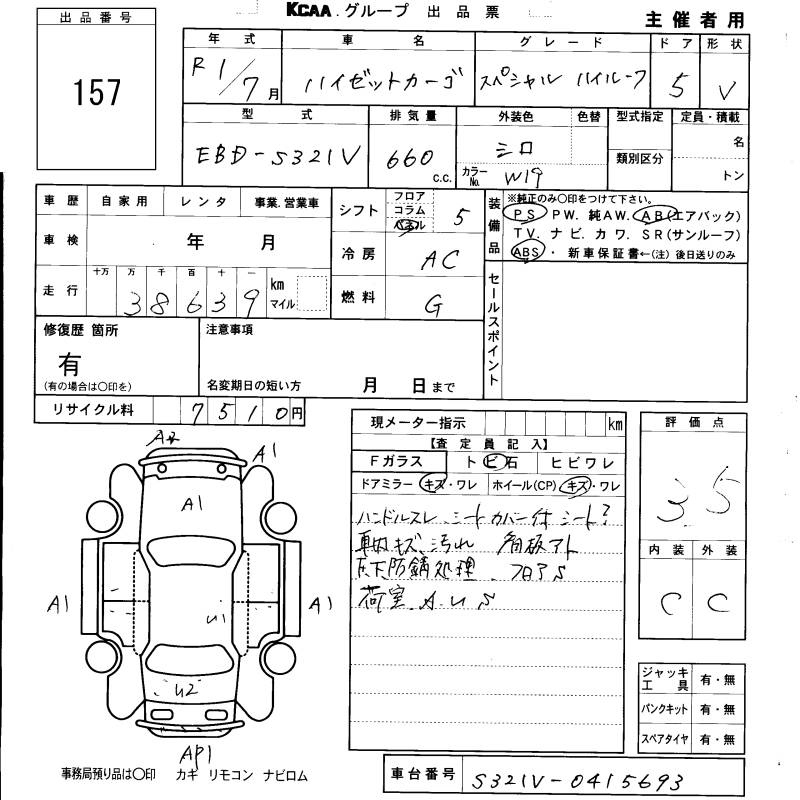 KCAA グループ 出品票
主催者用
出品番号
157
年式 車名 グレード ドア 形状
R1/7月 ハイゼットカーゴ スペシャル ハイルーフ 5 V
型式 排気量 外装色 色替 型式指定 定員・積載
EBD-S321V 660 c.c. シロ 名
カラーNo. W19 類別区分 トン
車歴 自家用 レンタ 事業.営業車
シフト フロア コラム パネル 5
装備品 ※純正のみ〇印をつけて下さい。
PS PW. 純AW. AB(エアバック)
TV. ナビ. カワ. SR(サンルーフ)
ABS・ 新車保証書←(注) 後日送りのみ
車検 年 月
冷房 AC
走行 十万 万 千 百 十 一
38639 km マイル
燃料 G
セールスポイント
修復歴 箇所 注意事項
有
(有の場合は〇印を) 名変期日の短い方 月 日まで
リサイクル料 7510円
現メーター指示 km
評価点
3.5
【査定員記入】
Fガラス トビ石 ヒビワレ
ドアミラー キズ・ワレ ホイール(CP) キズ・ワレ
ハンドルスレ、シートカバー付 シート?
車内キズ、汚れ
下廻防錆処理、フロアS
荷室.A.U.S
内装 外装
C C
A2
A1
A1
A1
A1
U1
U2
AP1
ジャッキ工具 有・無
パンクキット 有・無
スペアタイヤ 有・無
事務局預り品は〇印 カギ リモコン ナビロム
車台番号 S321V-0415693